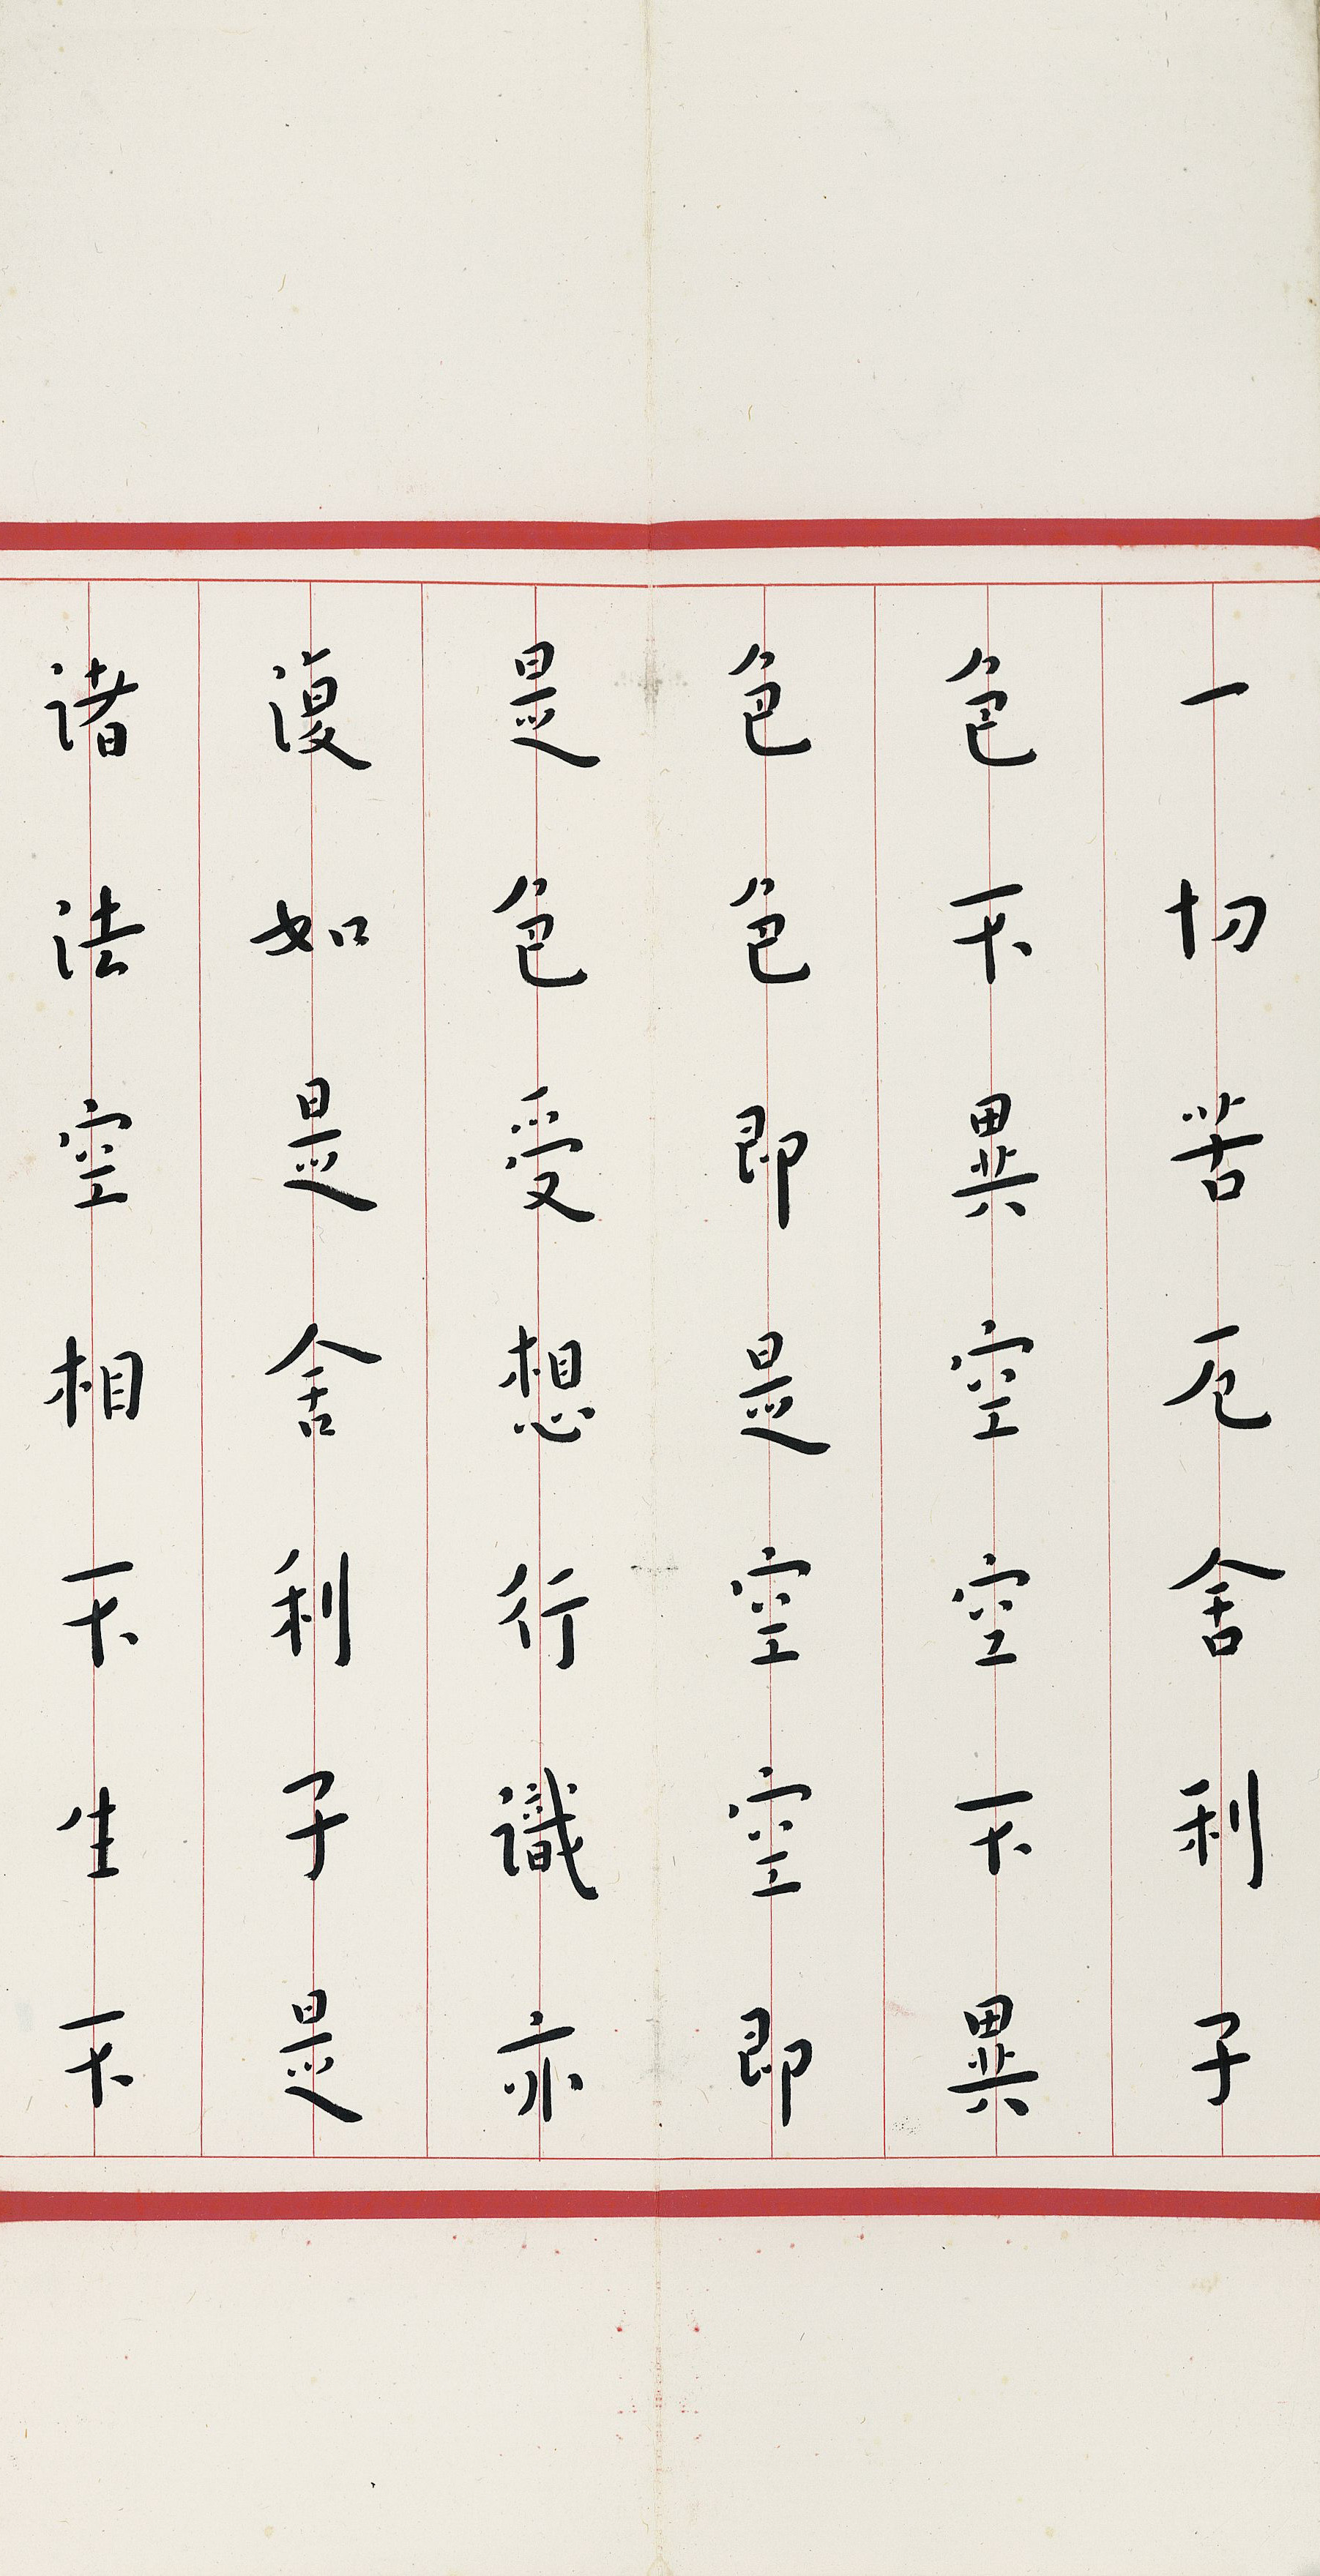 一切苦厄舍利子
色不異空空不異
色色即是空空即
是色受想行識亦
復如是舍利子是
諸法空相不生不